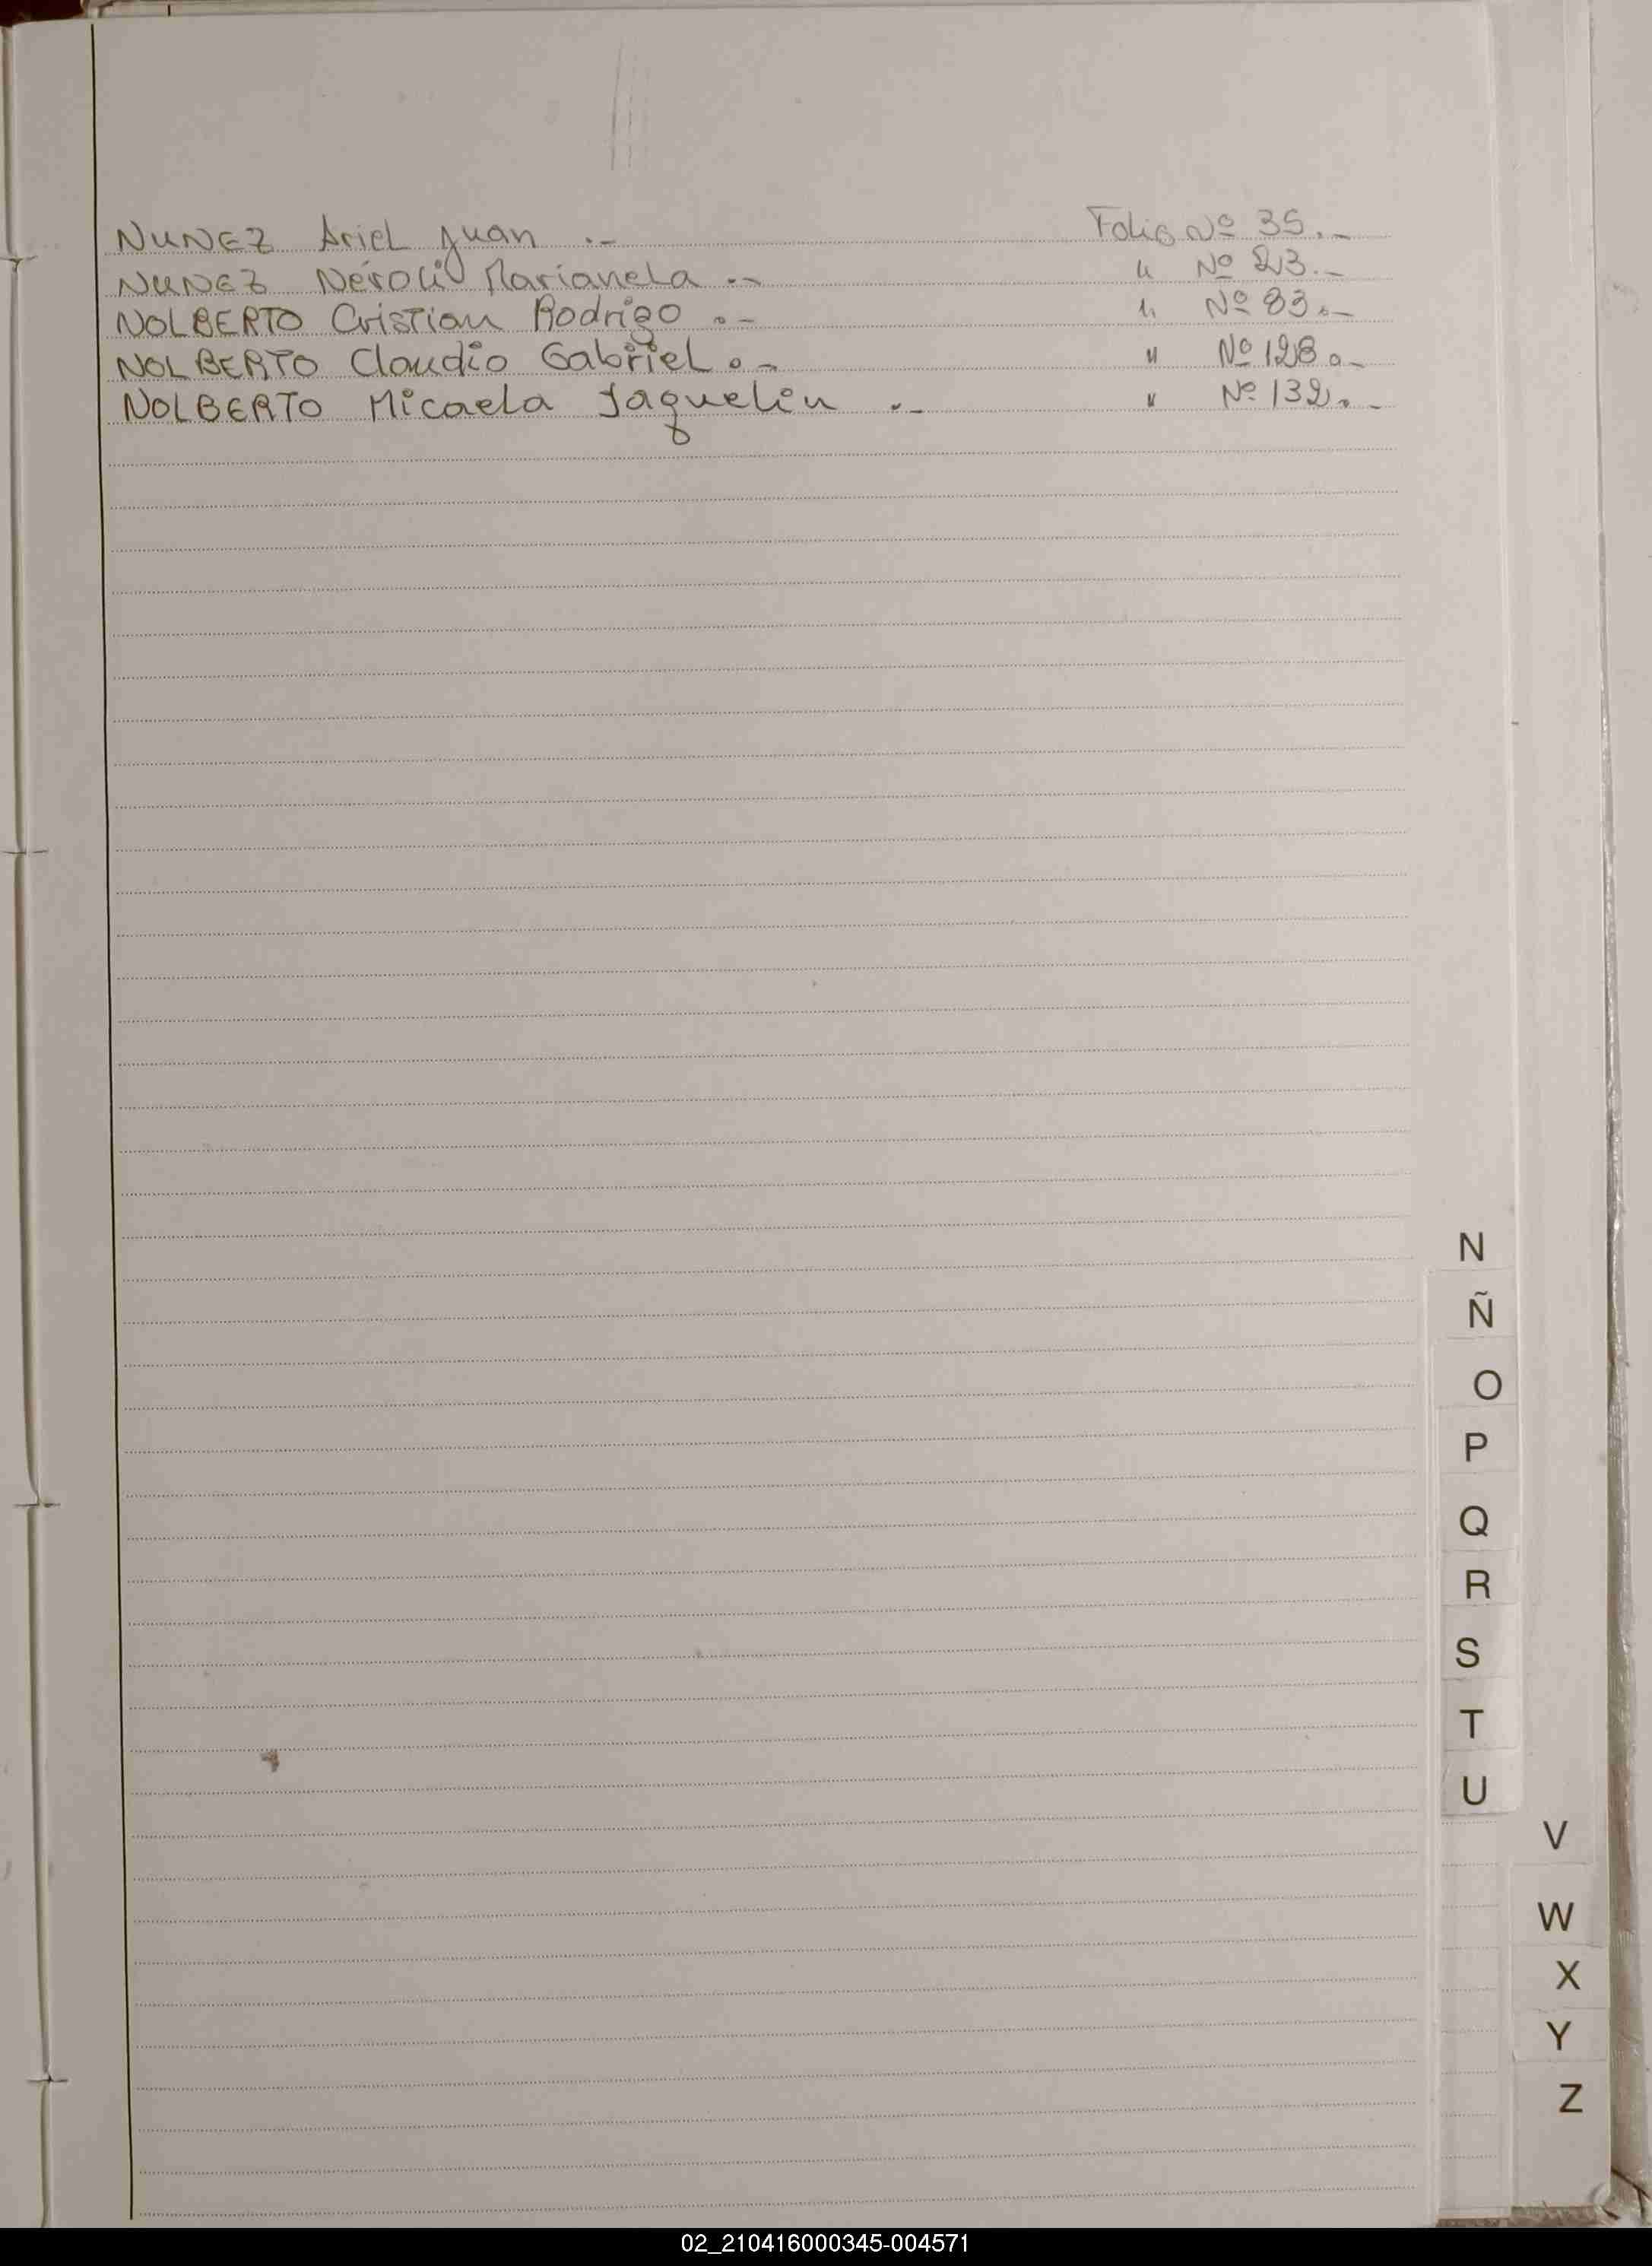 NUNEZ Ariel Juan .- Folio Nº 35.-
NUNEZ Néroli Marianela .- " Nº 23.-
NOLBERTO Cristian Rodrigo .- " Nº 83.-
NOLBERTO Claudio Gabriel .- " Nº 128.-
NOLBERTO Micaela Jaquelin .- " Nº 132.-
N
Ñ
O
P
Q
R
S
T
U
V
W
X
Y
Z
02_210416000345-004571